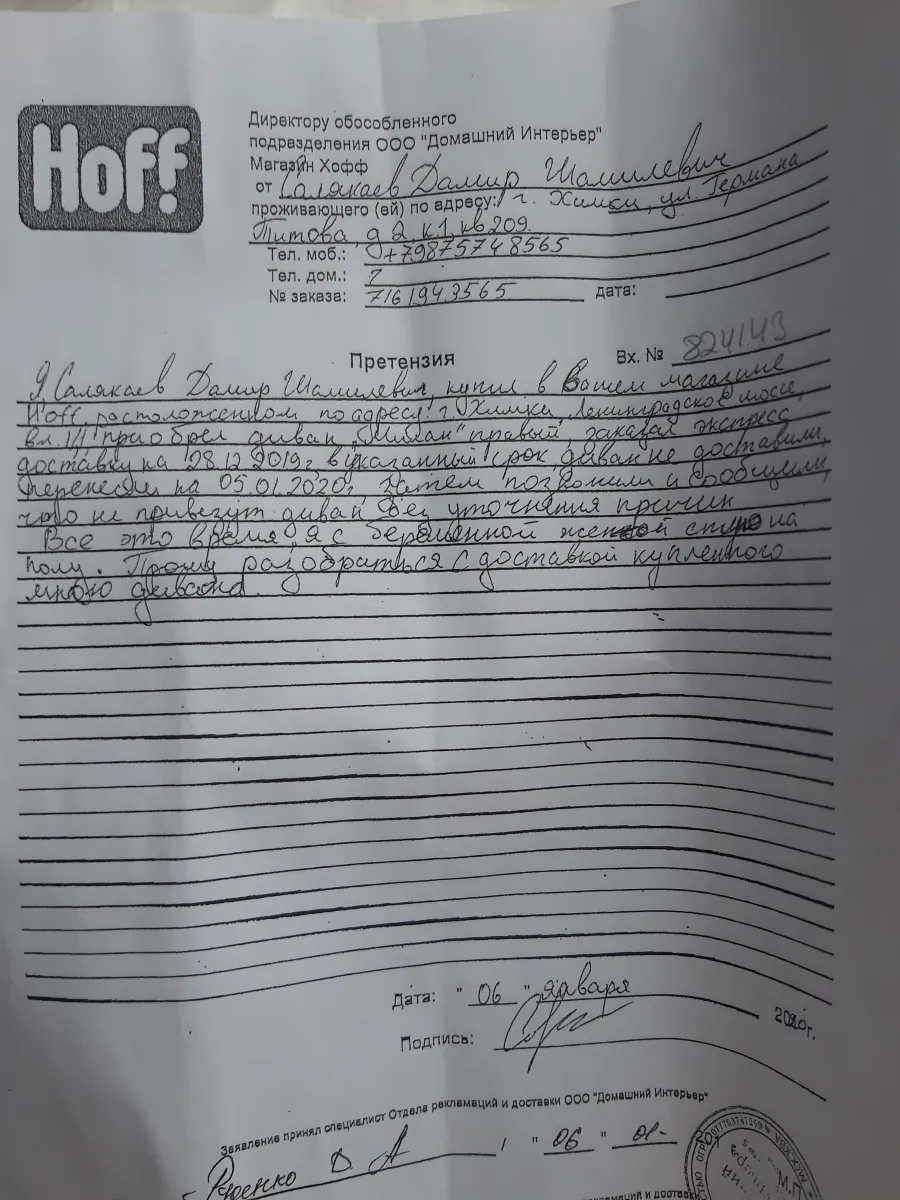 Hoff!
Директору обособленного
подразделения ООО "Домашний Интерьер"
Магазин Хофф
от Салякаев Дамир Шамилевич
проживающего (ей) по адресу: г. Химки, ул. Германа
Титова, д 2, к 1, кв 209.
Тел. моб.: +79875748565
Тел. дом.: 7
№ заказа: 7161943565 дата:
Претензия Вх. № 824143
Я, Салякаев Дамир Шамилевич, купил в Вашем магазине
Hoff, расположенном по адресу: г. Химки, Ленинградское шоссе,
вл. 1/1 приобрел диван правый, заказал экспресс
доставку на 28.12.2019г. в указанный срок диван не доставили,
перенесли на 05.01.2020г, затем позвонили и сообщили,
что не привезут диван без уточнения причин
Все это время, я с беременной женой сплю на
полу. Прошу разобраться с доставкой купленного
мною дивана.
Дата: "06" января 2020г.
Подпись:
Заявление принял специалист Отдела рекламаций и доставки ООО "Домашний Интерьер"
Д А / "06" 01-
М.П